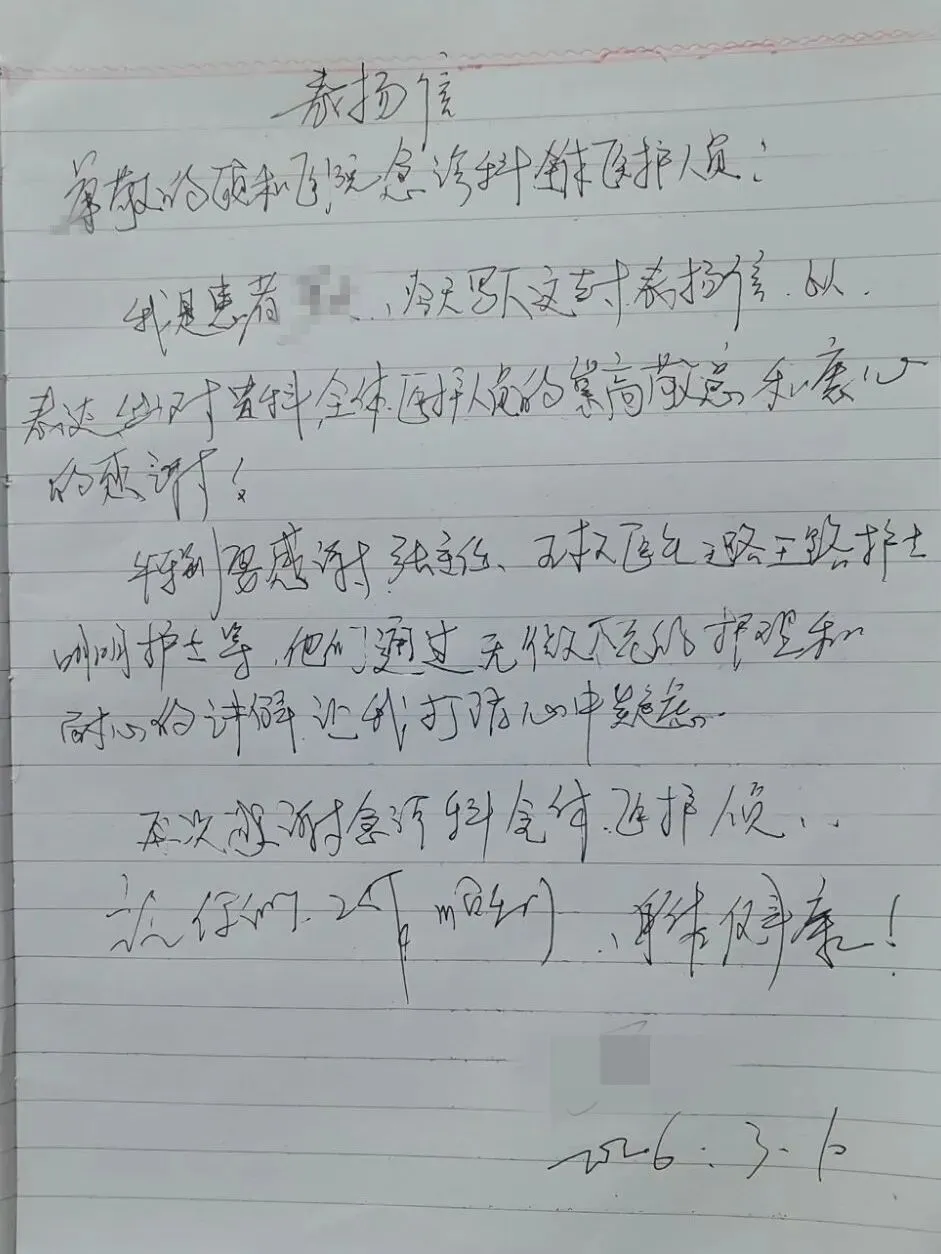 表扬信
尊敬的颐和医院急诊科全体医护人员：
我是患者 今天写下这封表扬信，以
表达 对贵科全体医护人员的崇高敬意和衷心
的感谢！
特别要感谢张主任、 医生 王璐护士
明明护士等，他们通过无微不至的护理和
耐心的讲解让我打消心中疑虑。
再次感谢急诊科全体医护人员，
祝你们工作顺利，身体健康！
2026.3.6